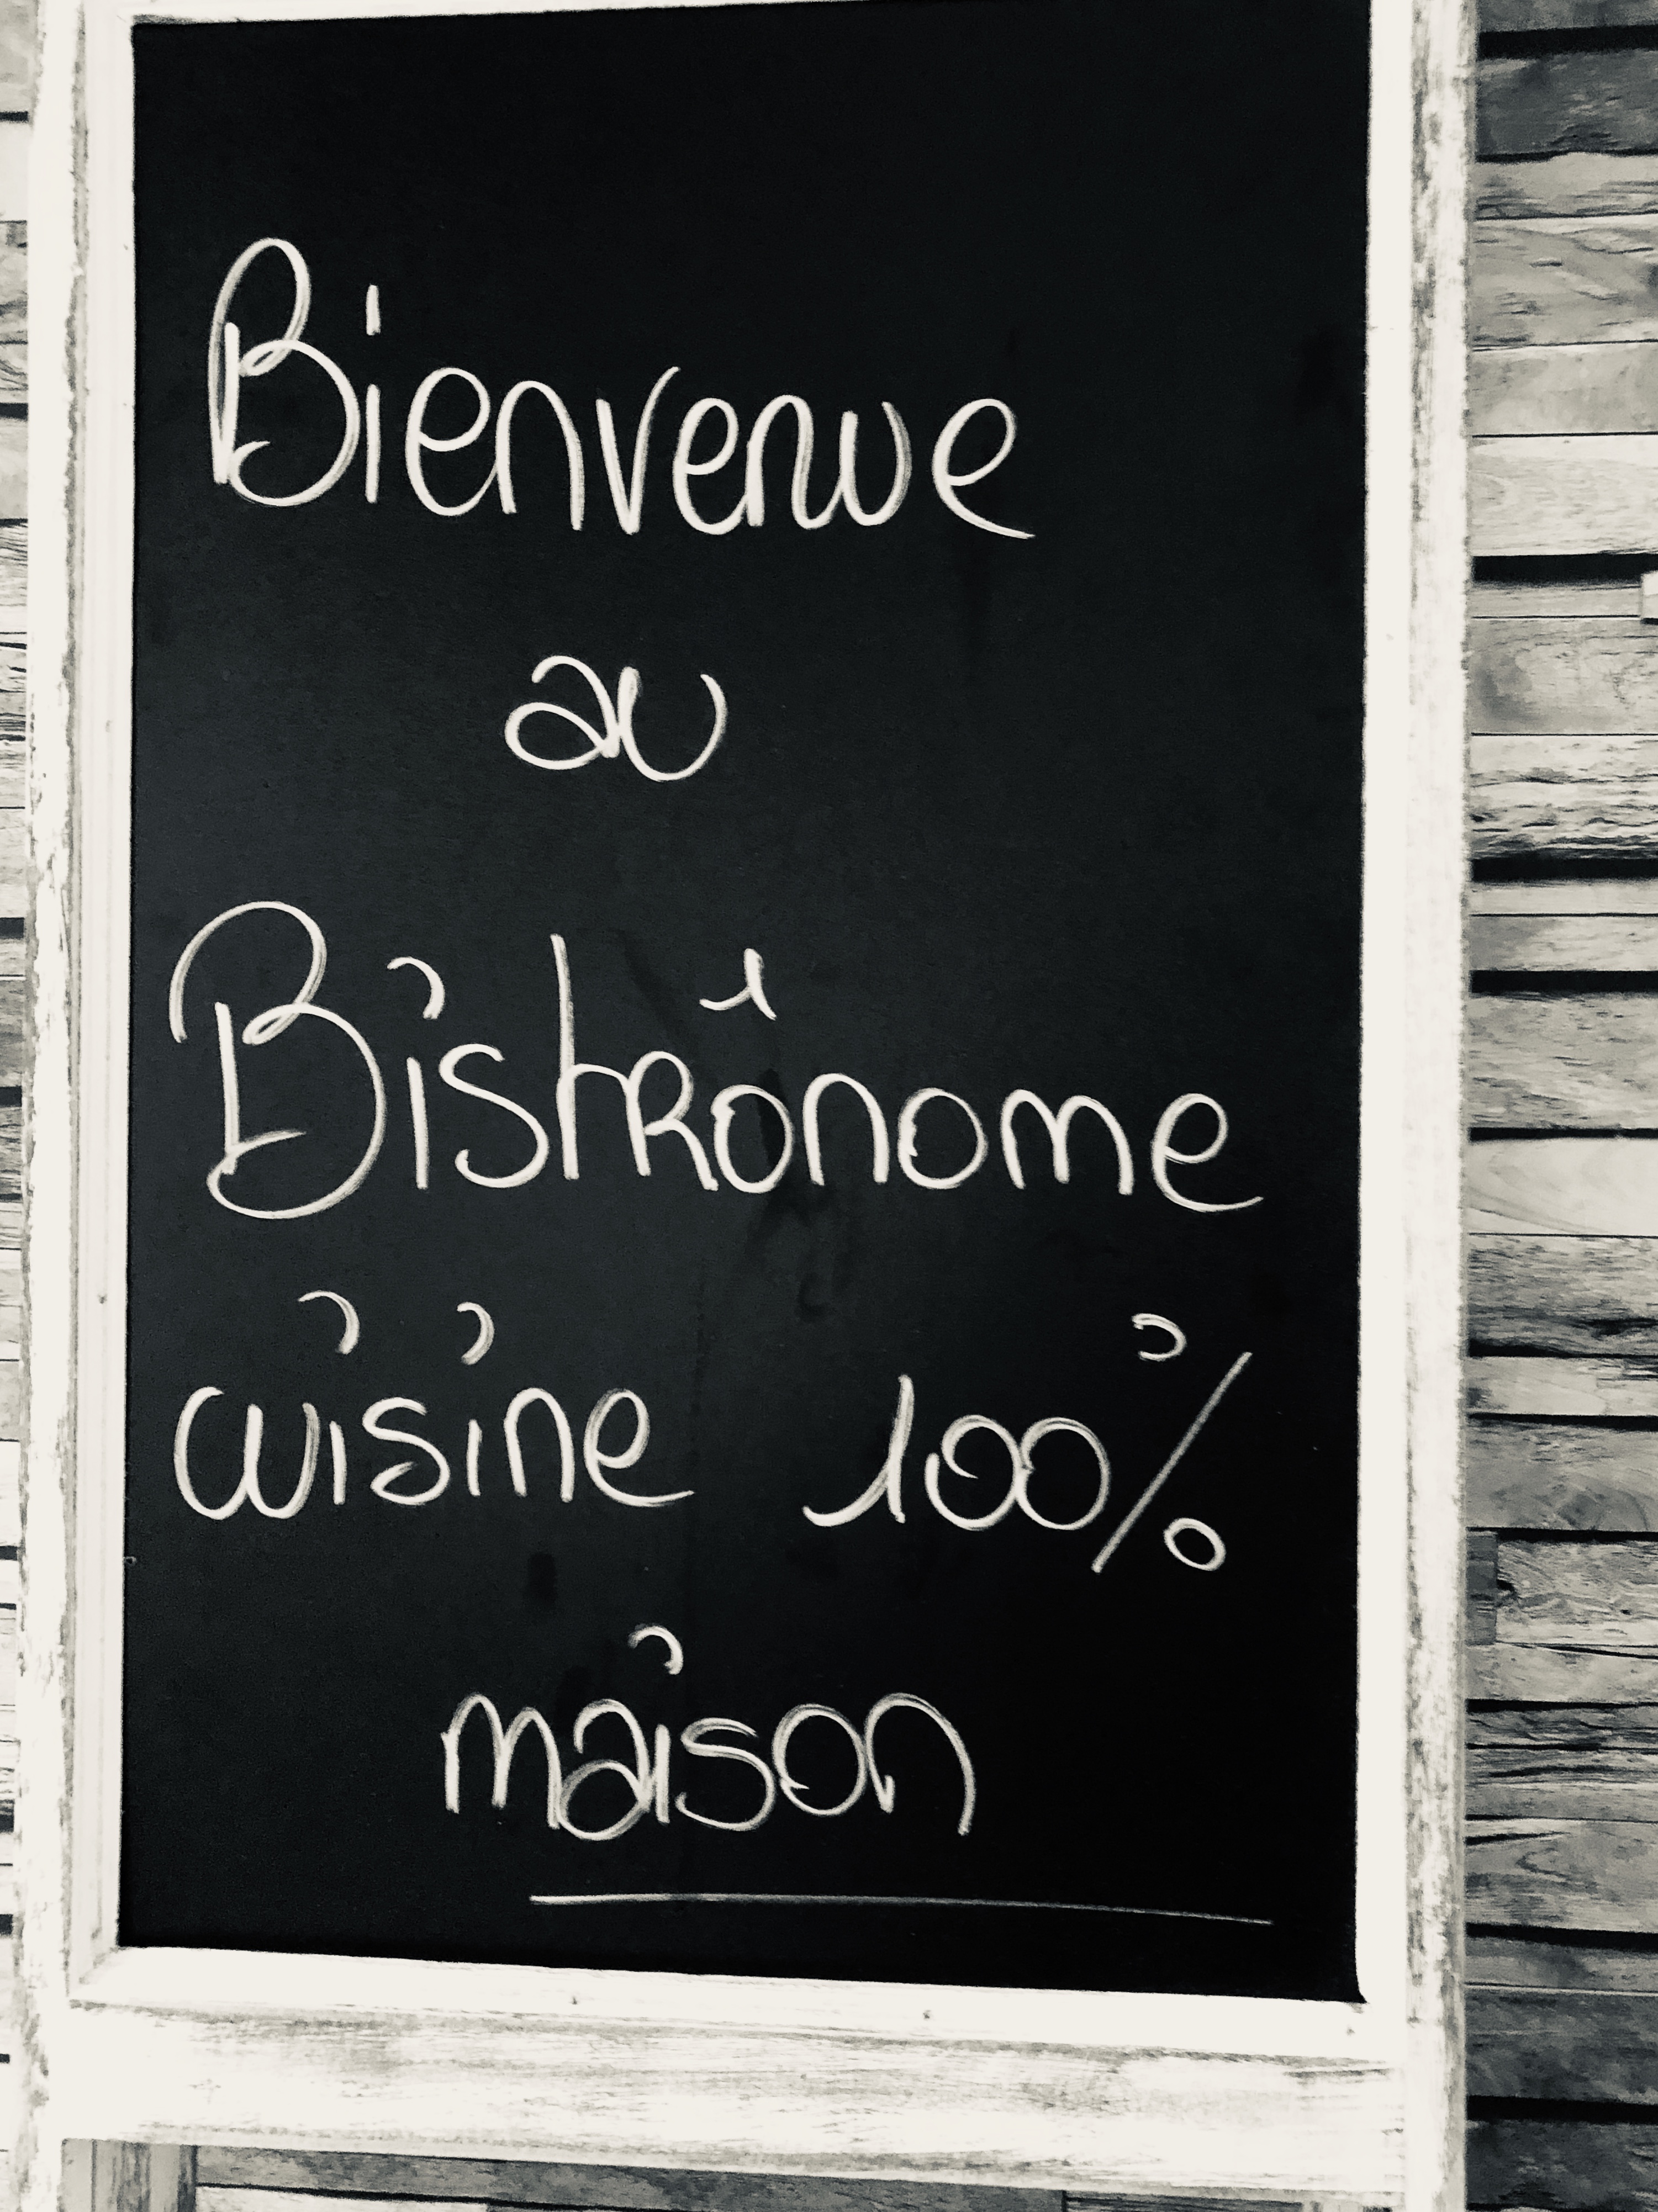 Bienvenue
au
Bistrônome
cuisine 100%
maison